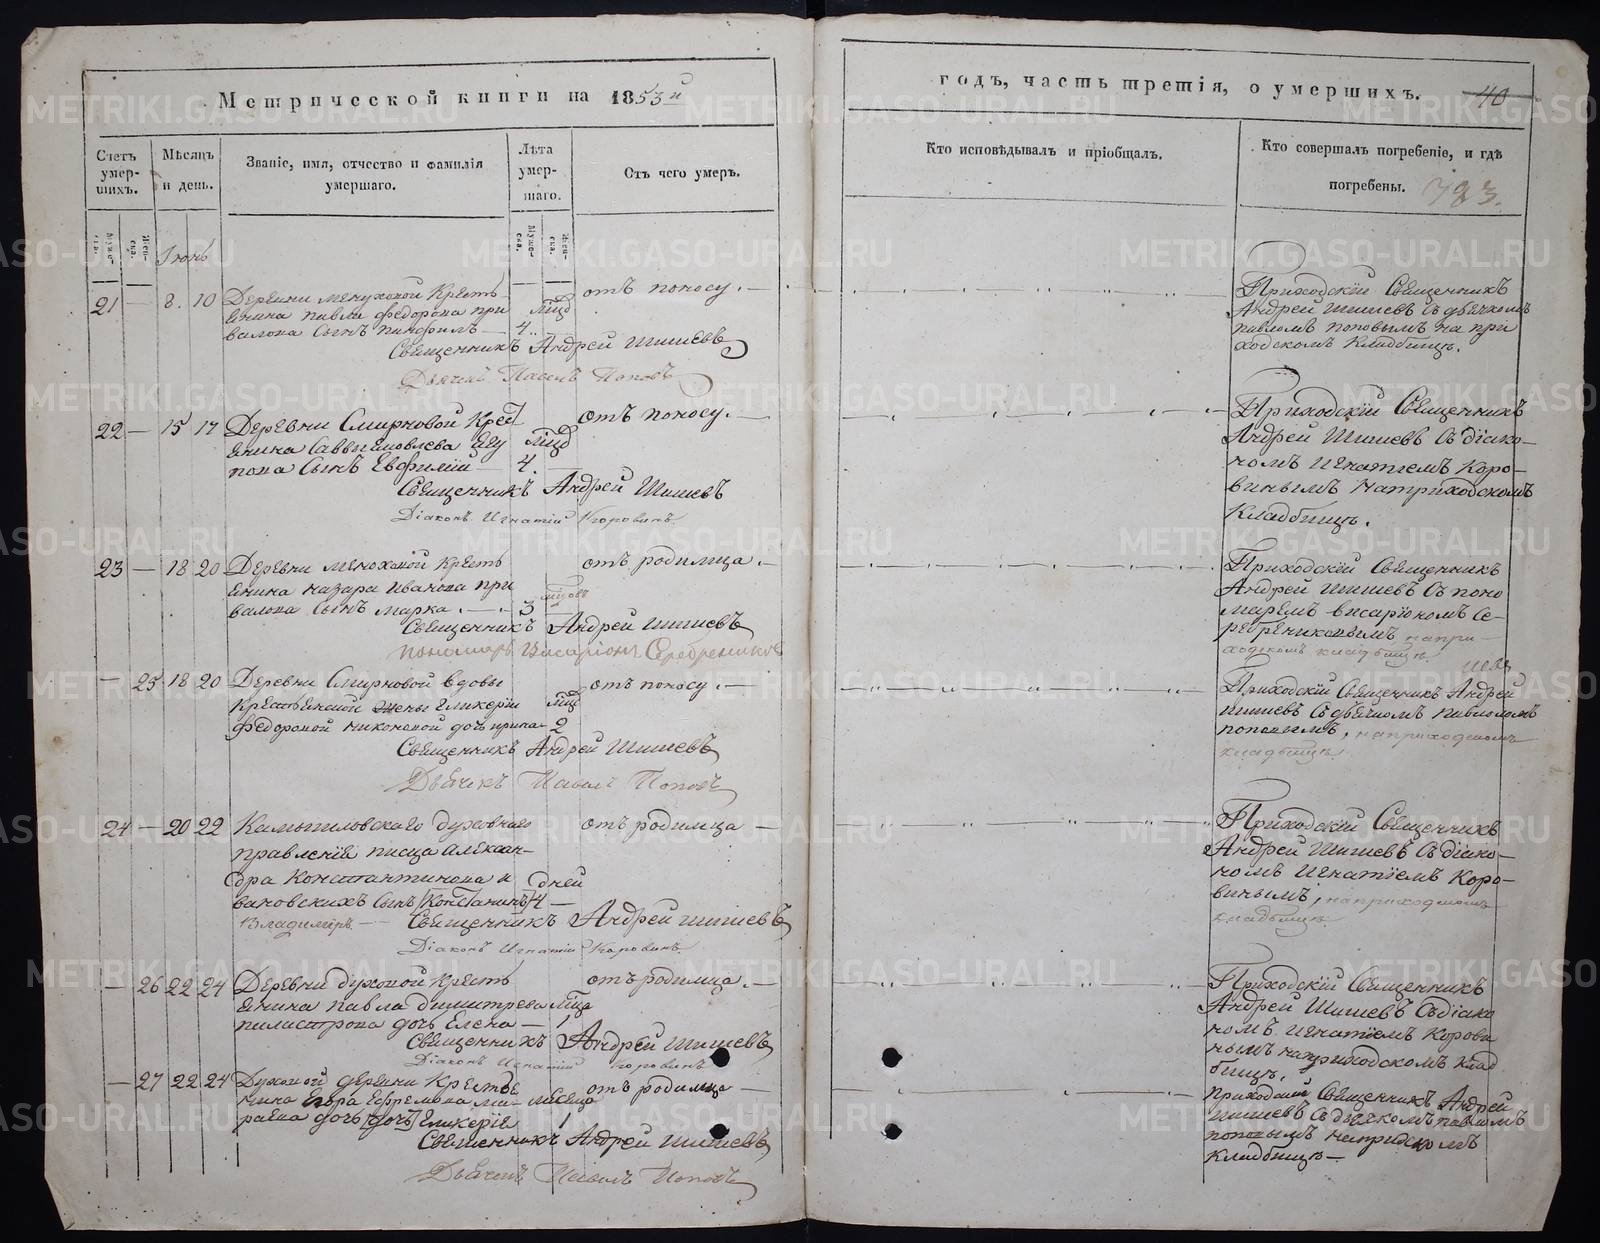 Метрической книги на 1853й
годъ, часть третія, о умершихъ.
40
Счетъ умер-шихъ.
Мѣсяцъ и день.
Званіе, имя, отчество и фамилія умершаго.
Лѣта умер-шаго.
Отъ чего умеръ.
Кто исповѣдывалъ и пріобщалъ.
Кто совершалъ погребеніе, и гдѣ погребены.
383.
Іюнь
21 — 8. 10 Деревни Менуховой Кресть
янина Павла Федорова При
валова Сынъ Панфилъ — 4
отъ поносу. —
Священникъ Андрей Шишевъ
Дьячекъ Павелъ Поповъ
Приходскій Священникъ
Андрей Шишевъ съ дьячкомъ
Павломъ Поповымъ на при
ходскомъ Кладбищѣ.
22 — 15 17 Деревни Смирновой Крест
янина Саввы Яковлева
Сынъ Евфимій 4.
отъ поносу. —
Священникъ Андрей Шишевъ
Діаконъ Игнатій Коровинъ
Приходскій Священникъ
Андрей Шишевъ съ діако-
номъ Игнатіемъ Коро-
винымъ на приходскомъ
Кладбищѣ.
23 — 18 20 Деревни Кресть
янина Назара Иванова При
валова Сынъ Марка. — 3
отъ родимца. —
Священникъ Андрей Шишевъ
Пономарь Висаріонъ Серебрениковъ
Приходскій Священникъ
Андрей Шишевъ съ поно
маремъ Висаріономъ Се-
ребрениковымъ на при-
ходскомъ кладбищѣ.
— 25 18 20 Деревни Смирновой вдовы
Крестьянской жены Гликеріи
Федоровой Никоновой дочь 2
отъ поносу. —
Священникъ Андрей Шишевъ
Дьячекъ Павелъ Поповъ
Приходскій Священникъ Андрей
Шишевъ съ дьячкомъ Павломъ
Поповымъ, на приходскомъ
кладбищѣ.
24 — 20 22 Камышловскаго духовнаго
правленія писца Алексан-
дра Константинова
Сынъ Константинъ 4 дней
Владиміръ —
отъ родимца —
Священникъ Андрей Шишевъ
Діаконъ Игнатій Коровинъ
Приходскій Священникъ
Андрей Шишевъ съ діако-
номъ Игнатіемъ Коро-
винымъ, на приходскомъ
кладбищѣ
— 26 22 24 Деревни Духовой Кресть
янина Павла Димитрева
дочь Елена — 1
отъ родимца. —
Священникъ Андрей Шишевъ
Діаконъ Игнатій Коровинъ
Приходскій Священникъ
Андрей Шишевъ съ діако
номъ Игнатіемъ Корови
нымъ на приходскомъ клад
бищѣ.
— 27 22 24 Духовой деревни Кресть
нина Егора Ефремова
дочь дочь Гликерія месяца 1
отъ родимца —
Священникъ Андрей Шишевъ
Дьячекъ Павелъ Поповъ
Приходскій Священникъ Андрей
Шишевъ съ дьячкомъ Павломъ
Поповымъ на приходскомъ
Кладбищѣ —
METRIKI.GASO-URAL.RU